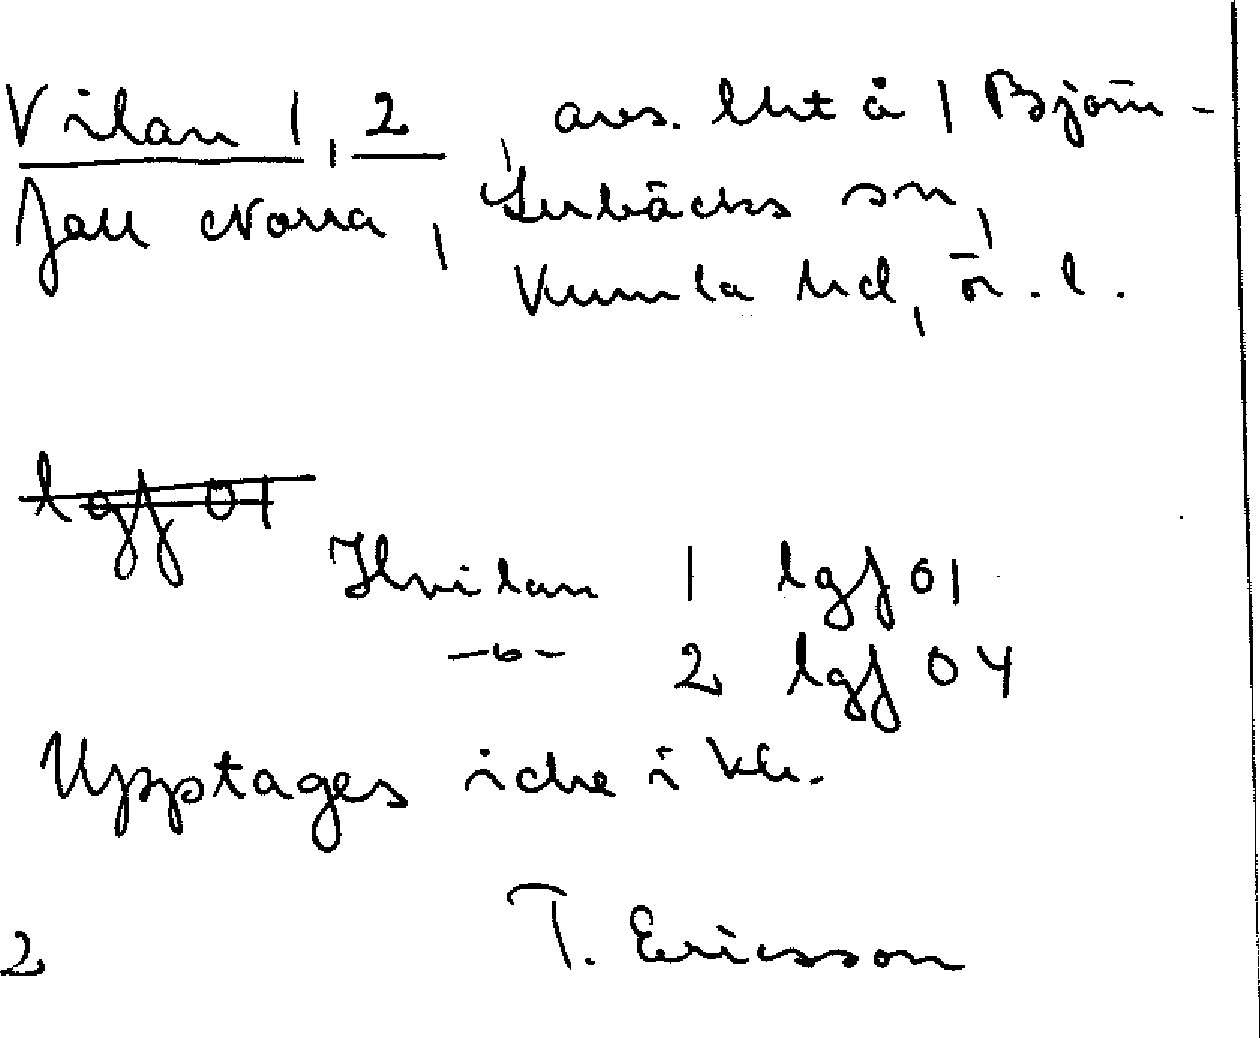 Vilan 1, 2, avs. lht å 1 Björn-
fall Norra, Lerbäcks sn,
Kumla hd, ör. l.
lgf 01
Hvilan 1 lgf 01
-"- 2 lgf 04
Upptages icke i kk.
T. Ericsson
2